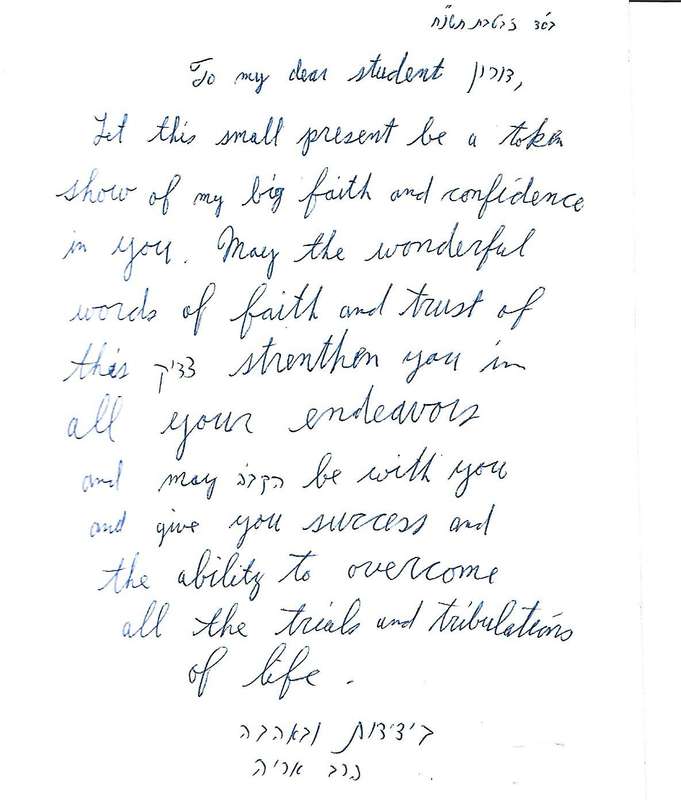 בס״ד בטבת תשנ״ח
To my dear student דורון,
Let this small present be a token
show of my big faith and confidence
in you. May the wonderful
words of faith and trust of
this צדיק strenthen you in
all your endeavors
and may הקב״ה be with you
and give you success and
the ability to overcome
all the trials and tribulations
of life.
בידידות ובאהבה
הרב אריה